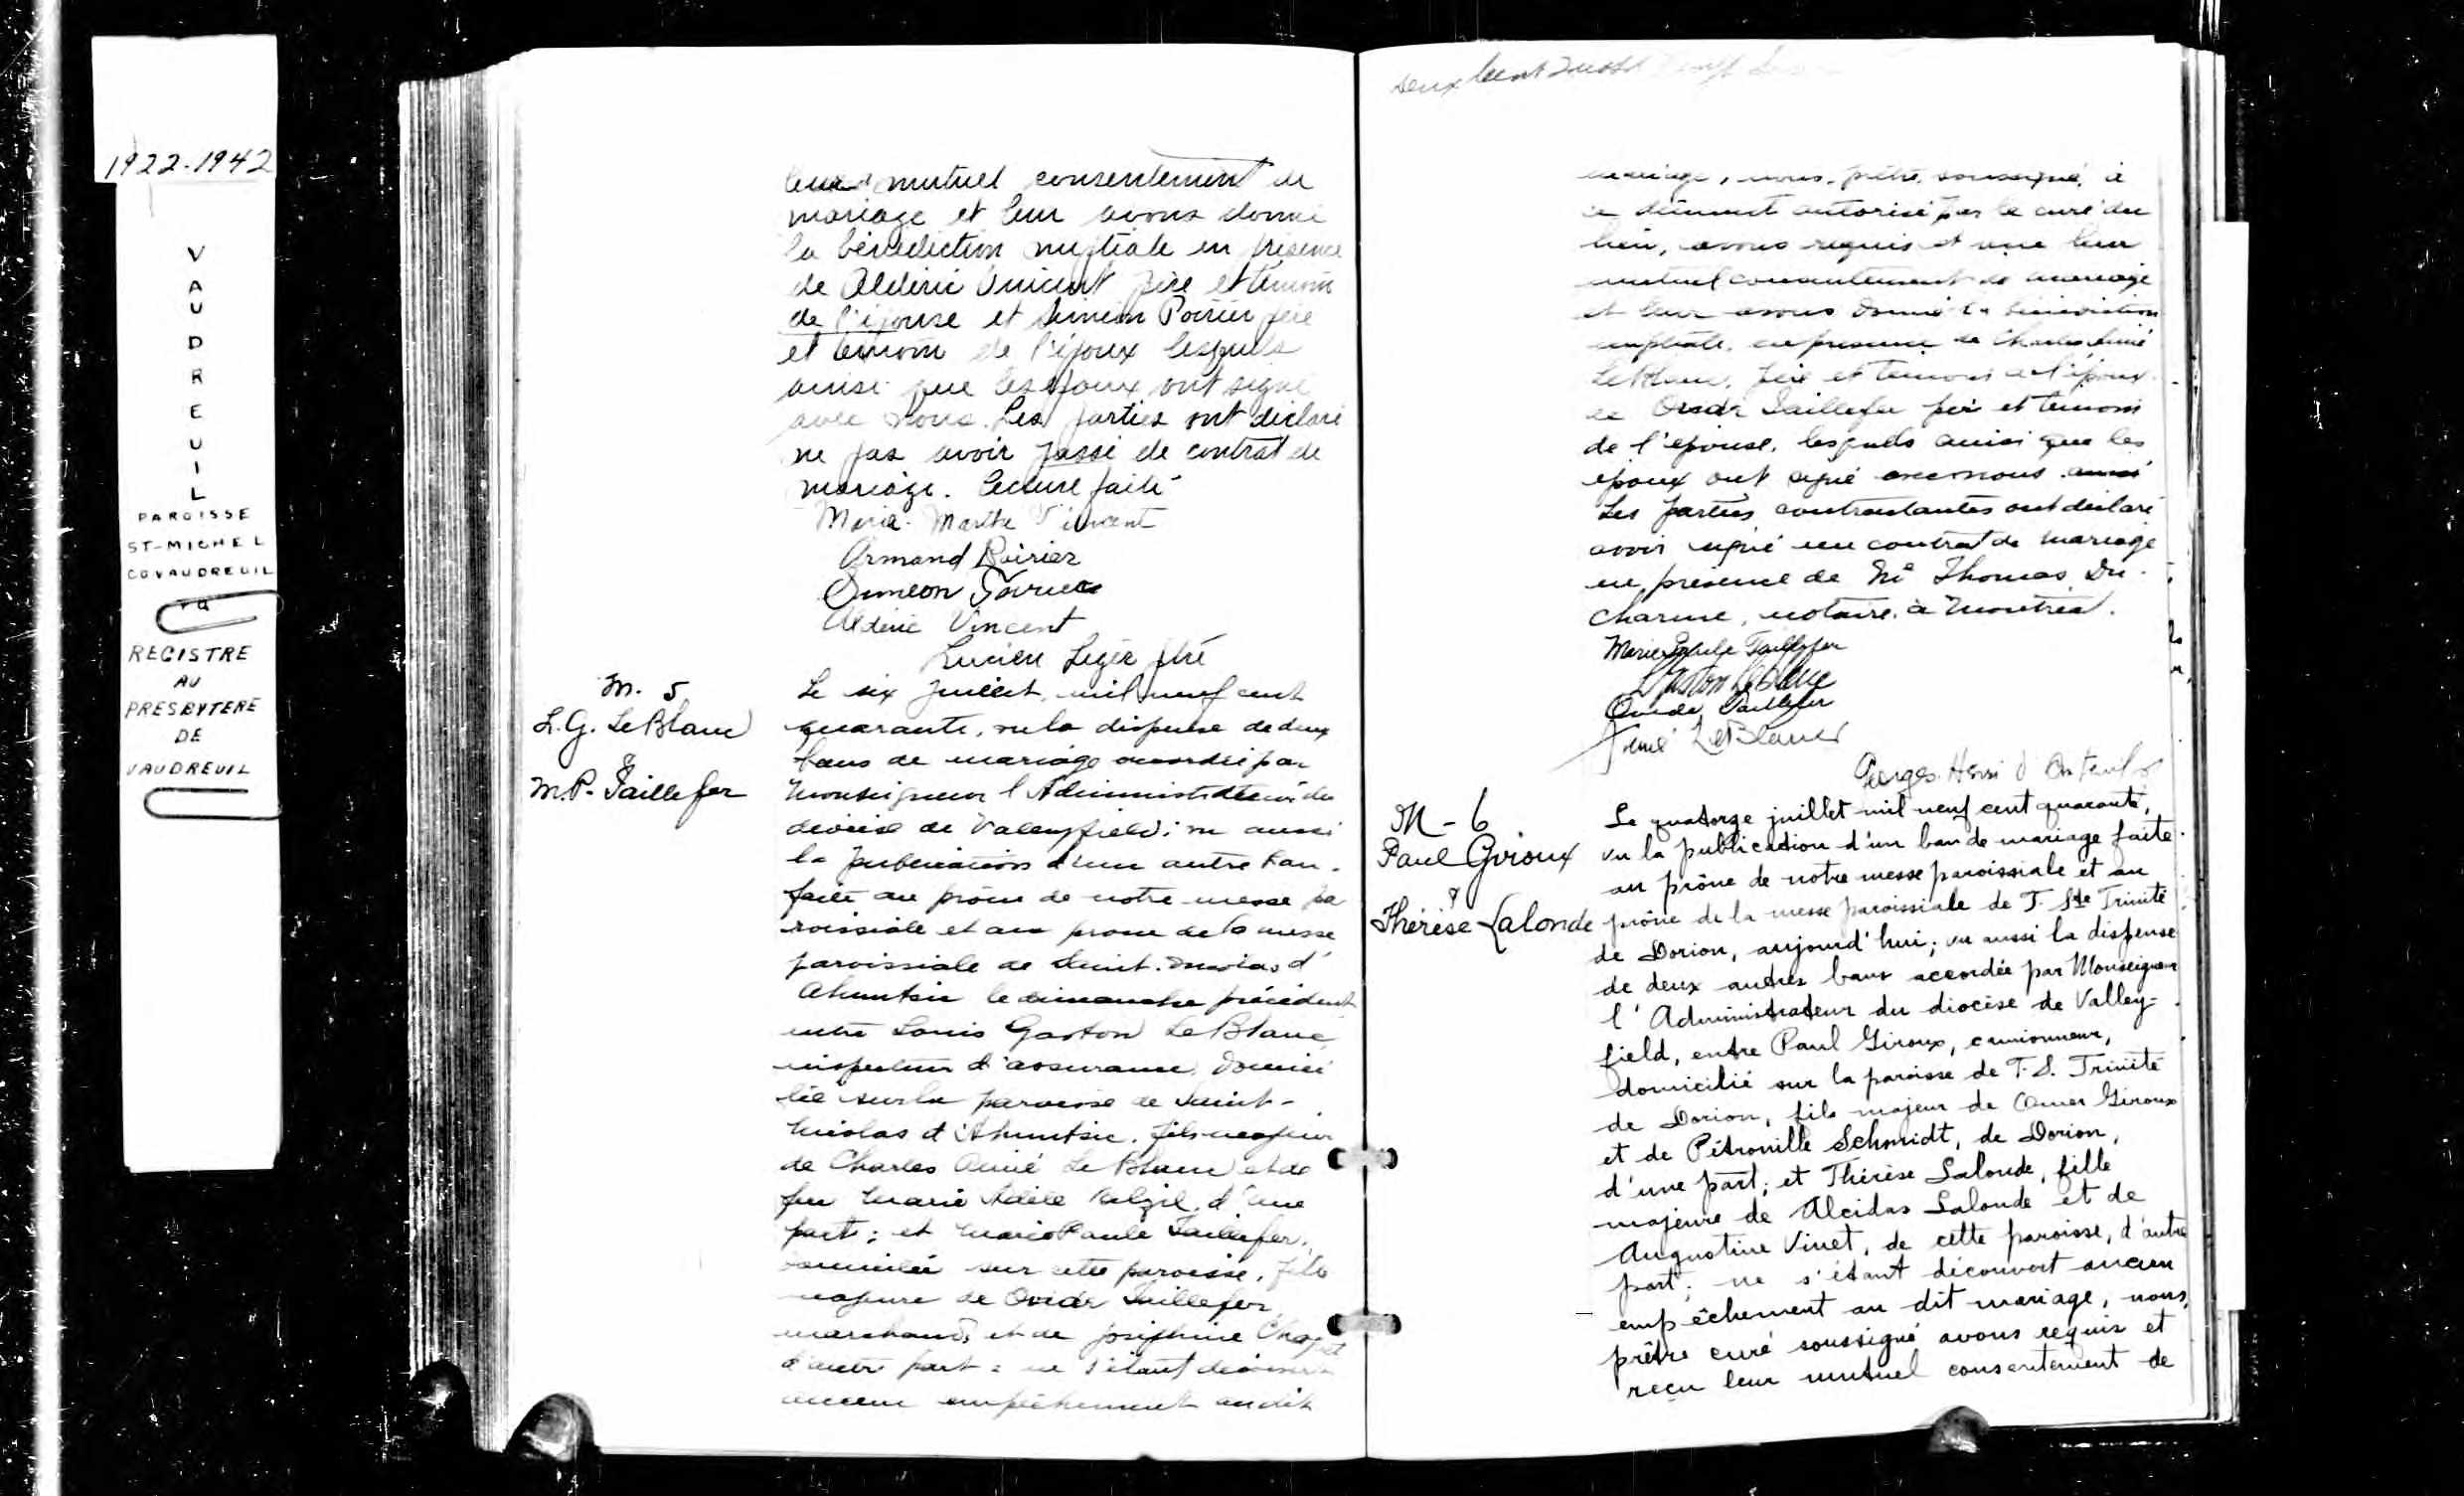 1922-1942
VAUDREUIL
PAROISSE
ST-MICHEL
CO VAUDREUIL
REGISTRE
AU
PRESBYTERE
DE
VAUDREUIL
leur mutuel consentement de
mariage et leur avons donné
la bénédiction nuptiale en présence
de Aldéric Vincent père et témoin
de l'épouse et Siméon Poirier père
et témoin de l'époux lesquels
ainsi que les époux ont signé
avec nous. Les parties ont déclaré
ne pas avoir passé de contrat de
mariage. Lecture faite
Marie-Marthe Vincent
Armand Poirier
Siméon Poirier
Aldéric Vincent
Lucien Légér ptre
M. 5
L.G. LeBlanc
&
M.P. Taillefer
Le six juillet, mil neuf cent
quarante, vu la dispense de deux
bans de mariage accordée par
Monseigneur l'Administrateur du
diocèse de Valleyfield; vu aussi
la publication d'un autre ban
faite au prône de notre messe pa
roissiale et au prone de la messe
paroissiale de Saint. Nicolas d'
Ahuntsic le dimanche précédent
entre Louis Gaston LeBlanc,
inspecteur d'assurance, domici
lié sur la paroisse de Saint-
Nicolas d'Ahuntsic, fils majeur
de Charles Aimé LeBlanc et de
feu Marie Adèle d'une
part; et Marie Paule Taillefer,
domiciliée sur cette paroisse, fille
majeure de Ovide Taillefer,
marchand, et de Joséphine
d'autre part: ne s'étant découvert
aucun empêchement au dit
deux cent
mariage, nous, prêtre soussigné, à
ce dûment autorisé par le curé du
lieu, avons requis et reçu leur
mutuel consentement de mariage
et leur avons donné la bénédiction
nuptiale, en présence de Charles Aimé
LeBlanc, père et témoin de l'époux
et Ovide Taillefer père et témoin
de l'épouse, lesquels ainsi que les
époux ont signé avec nous.
Les parties contractantes ont déclaré
avoir signé un contrat de mariage
en présence de Me Thomas Du-
charme, notaire, à Montréal.
Marie Paule Taillefer
L Gaston LeBlanc
Ovide Taillefer
Aimé LeBlanc
Georges-Henri d'
M - 6
Paul Giroux
&
Thérèse Lalonde
Le quatorze juillet mil neuf cent quarante,
vu la publication d'un ban de mariage faite
au prône de notre messe paroissiale et au
prône de la messe paroissiale de T. Ste Trinité
de Dorion, aujourd'hui; vu aussi la dispense
de deux autres bans accordée par Monseigneur
l'Administrateur du diocèse de Valley=
field, entre Paul Giroux, camionneur,
domicilié sur la paroisse de T.S. Trinité
de Dorion, fils majeur de Omer Giroux
et de Pétronille Schmidt, de Dorion,
d'une part; et Thérèse Lalonde, fille
majeure de Alcidas Lalonde et de
Augustine Vinet, de cette paroisse, d'autre
part; ne s'étant découvert aucun
empêchement au dit mariage, nous,
prêtre curé soussigné avons requis et
reçu leur mutuel consentement de